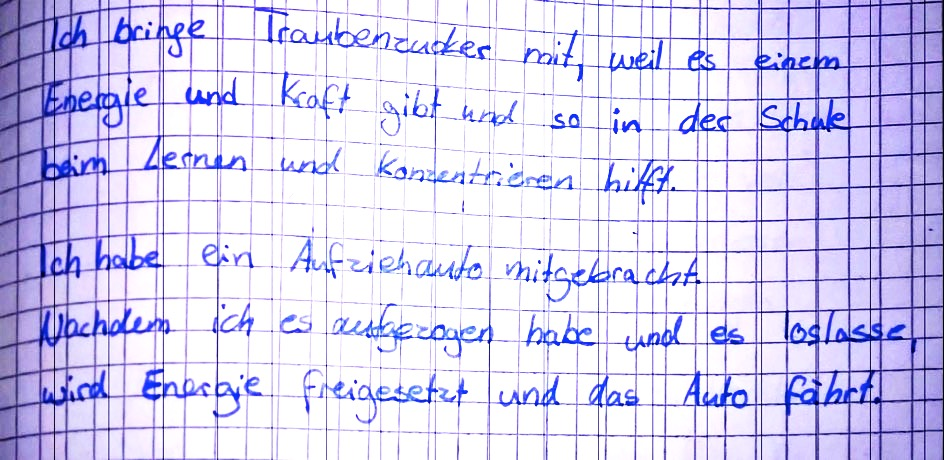 Ich bringe Traubenzucker mit, weil es einem
Energie und Kraft gibt und so in der Schule
beim Lernen und Konzentrieren hilft.
Ich habe ein Aufziehauto mitgebracht.
Nachdem ich es aufgezogen habe und es loslasse,
wird Energie freigesetzt und das Auto fährt.